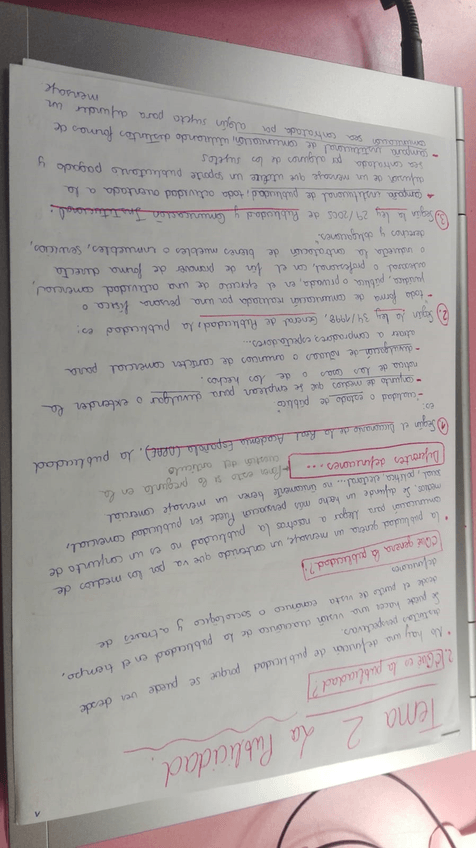 1
Tema 2 La Publicidad.
2. ¿Qué es la publicidad?
• No hay una definición de publicidad porque se puede ver desde
distintas perspectivas.
Se puede hacer una visión diacrónica de la publicidad en el tiempo,
desde el punto de vista económico o sociológico y a través de
definiciones
¿Qué genera la publicidad?
• La publicidad genera un mensaje, un contenido que va por los medios de
comunicación para llegar a nosotros. La publicidad no es un conjunto de
medios. Se difunde un hecho más persuasivo. Puede ser publicidad comercial,
social, política, electoral... no únicamente tienen un mensaje comercial
Diferentes definiciones...
esto si lo pregunta en la
cuestión del artículo
1. Según el Diccionario de la Real Academia Española (DRAE), la publicidad
es:
- cualidad o estado de público
- conjunto de medios que se emplean para divulgar o extender la
noticia de las cosas o de los hechos.
- divulgación de noticias o anuncios de carácter comercial para
atraer a compradores, espectadores...
2. Según la ley 34/1998, General de Publicidad, la publicidad es:
- toda forma de comunicación realizada por una persona física o
jurídica, pública o privada, en el ejercicio de una actividad comercial,
industrial o profesional, con el fin de promover de forma directa
o indirecta la contratación de bienes muebles o inmuebles, servicios,
derechos y obligaciones".
3. Según la ley 29/2005 de Publicidad y Comunicación Institucional:
- campaña institucional de publicidad, toda actividad orientada a la
difusión de un mensaje que utilice un soporte publicitario pagado y
sea contratada por algunos de los sujetos
- campaña institucional de comunicación, utilizando distintas formas de
comunicación sea contratada por algún sujeto para difundir un
mensaje